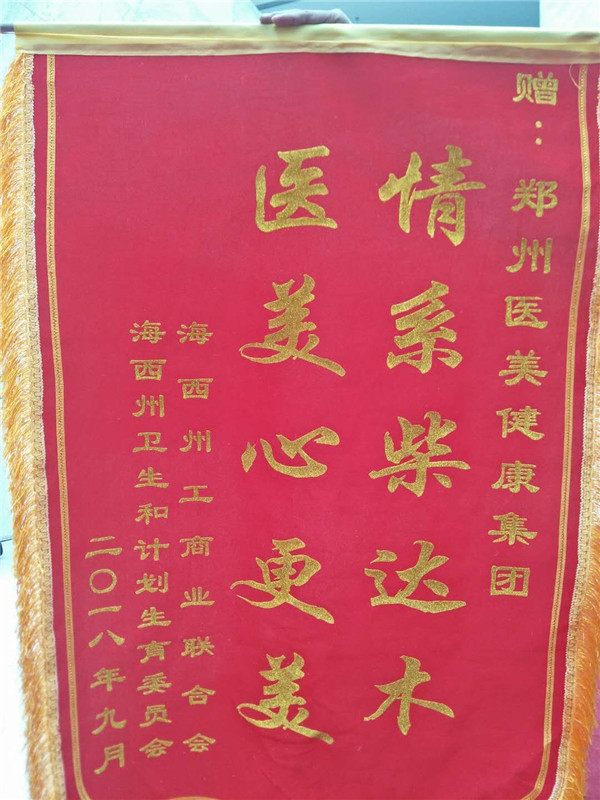 赠：郑州医美健康集团
情系柴达木
医美心更美
海西州工商业联合会
海西州卫生和计划生育委员会
二〇一八年九月